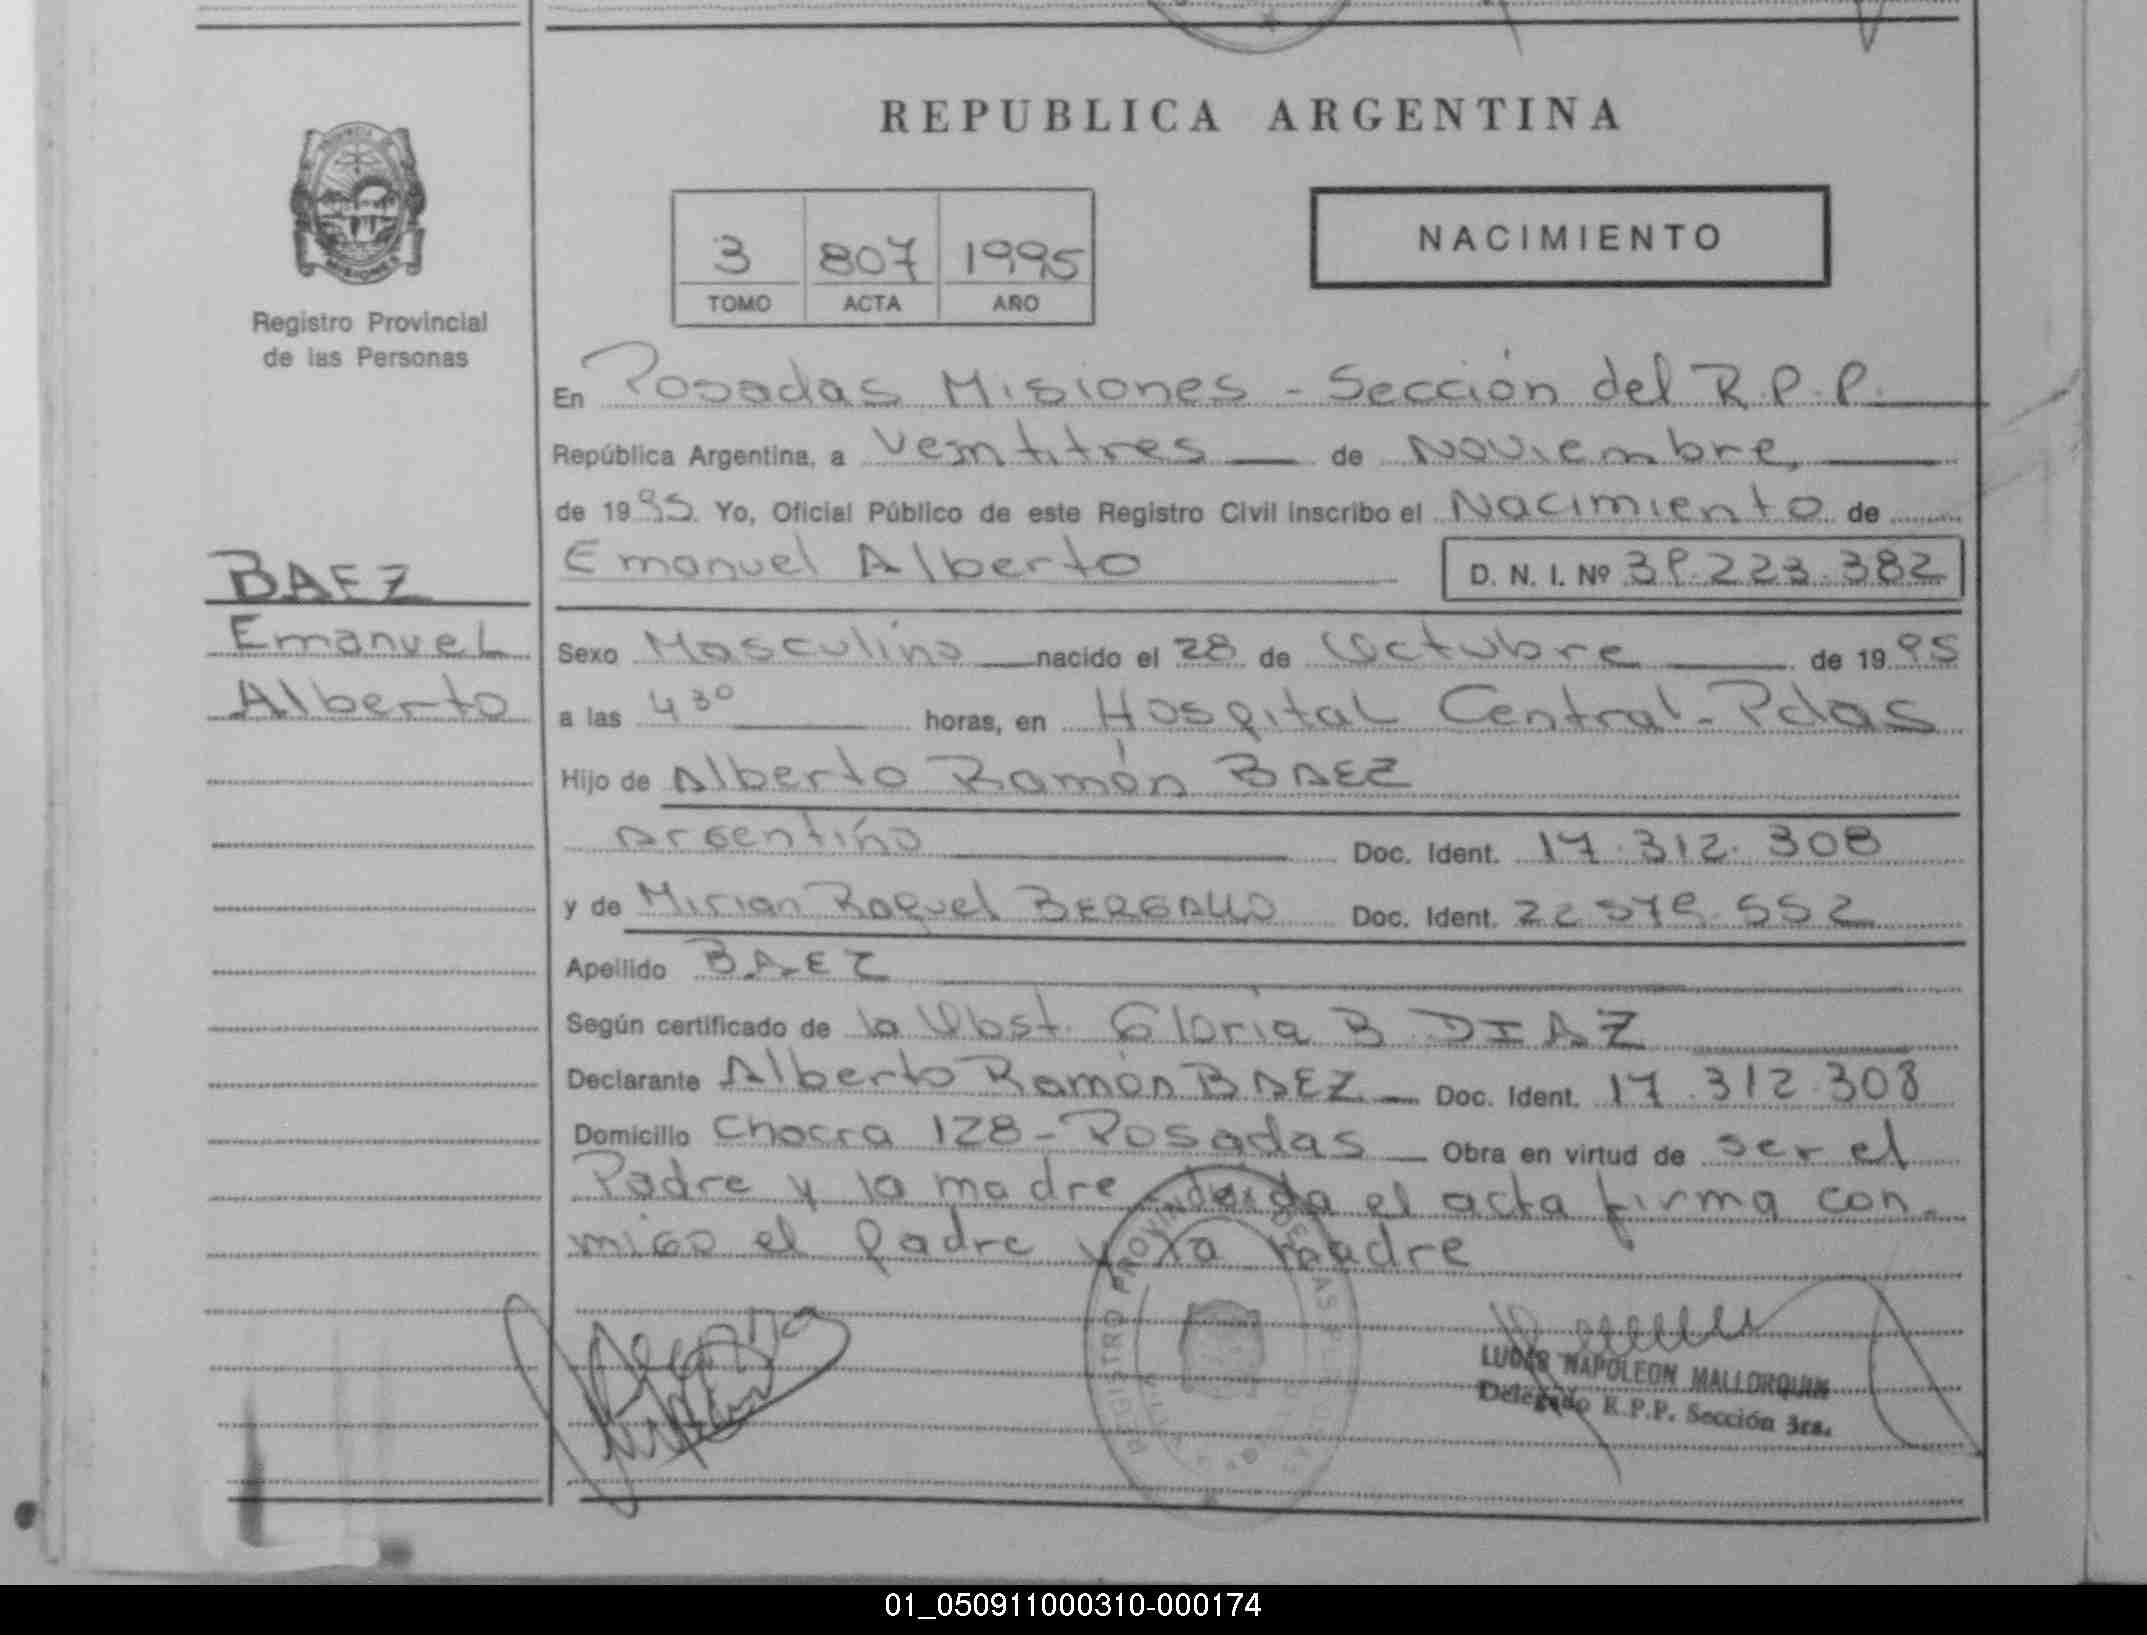 REPUBLICA ARGENTINA
NACIMIENTO
3 807 1995
TOMO ACTA AÑO
Registro Provincial
de las Personas
En Posadas Misiones - Sección del R.P.P.
República Argentina, a Veintitres de Noviembre,
de 1995. Yo, Oficial Público de este Registro Civil inscribo el Nacimiento de
Emanuel Alberto D. N. I. Nº 39.223.382
BAEZ
Emanuel
Alberto
Sexo Masculino nacido el 28 de Octubre de 1995
a las 4 30 horas, en Hospital Central - Pdas
Hijo de Alberto Ramón BAEZ
argentino Doc. Ident. 17.312.308
y de Mirian Raquel BERGALLO Doc. Ident. 22 552
Apellido BAEZ
Según certificado de la Obst. Gloria B DIAZ
Declarante Alberto Ramón BAEZ Doc. Ident. 17.312.308
Domicilio Chacra 128 - Posadas Obra en virtud de ser el
Padre y la madre leída el acta firma con-
migo el padre y la madre
REGISTRO PROVINCIAL DE LAS PERSONAS
LUCAS NAPOLEON MALLORQUIN
Delegado R.P.P. Sección 3ra.
01_050911000310-000174